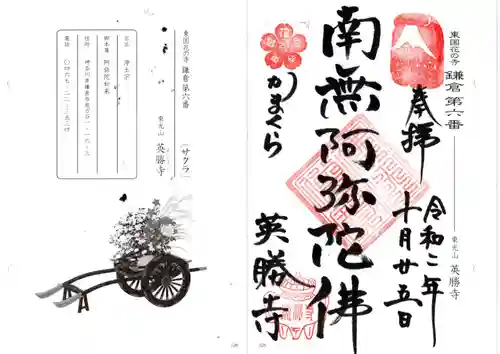 東国花の寺 鎌倉第六番
東光山 英勝寺
(サクラ)
宗派 浄土宗
御本尊 阿弥陀如来
住所 神奈川県鎌倉市扇ガ谷一・一六・三
電話
東国花の寺 鎌倉第六番
東光山 英勝寺
奉拝
令和二年
十月廿五日
南無阿弥陀佛
かまくら
英勝寺